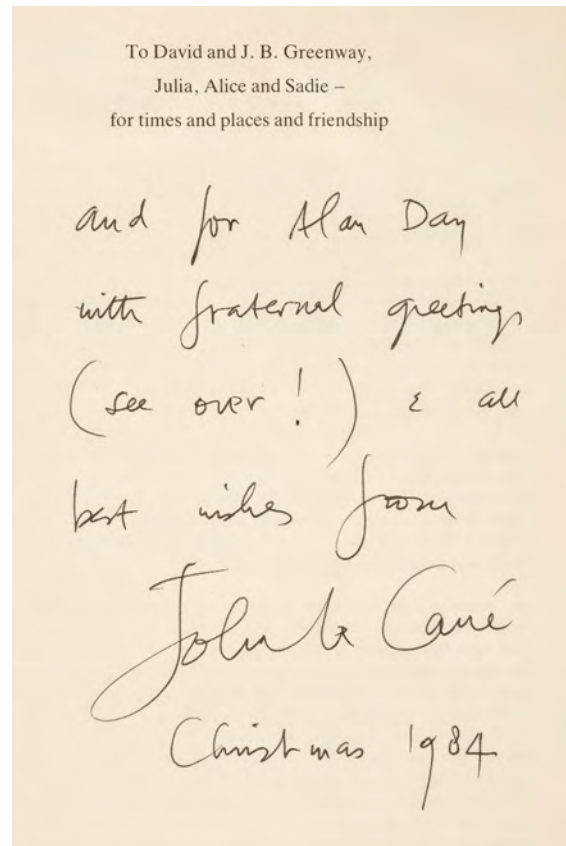 To David and J. B. Greenway,
Julia, Alice and Sadie –
for times and places and friendship
and for Alan Day
with fraternal greetings
(see over!) & all
best wishes from
John le Carré
Christmas 1984